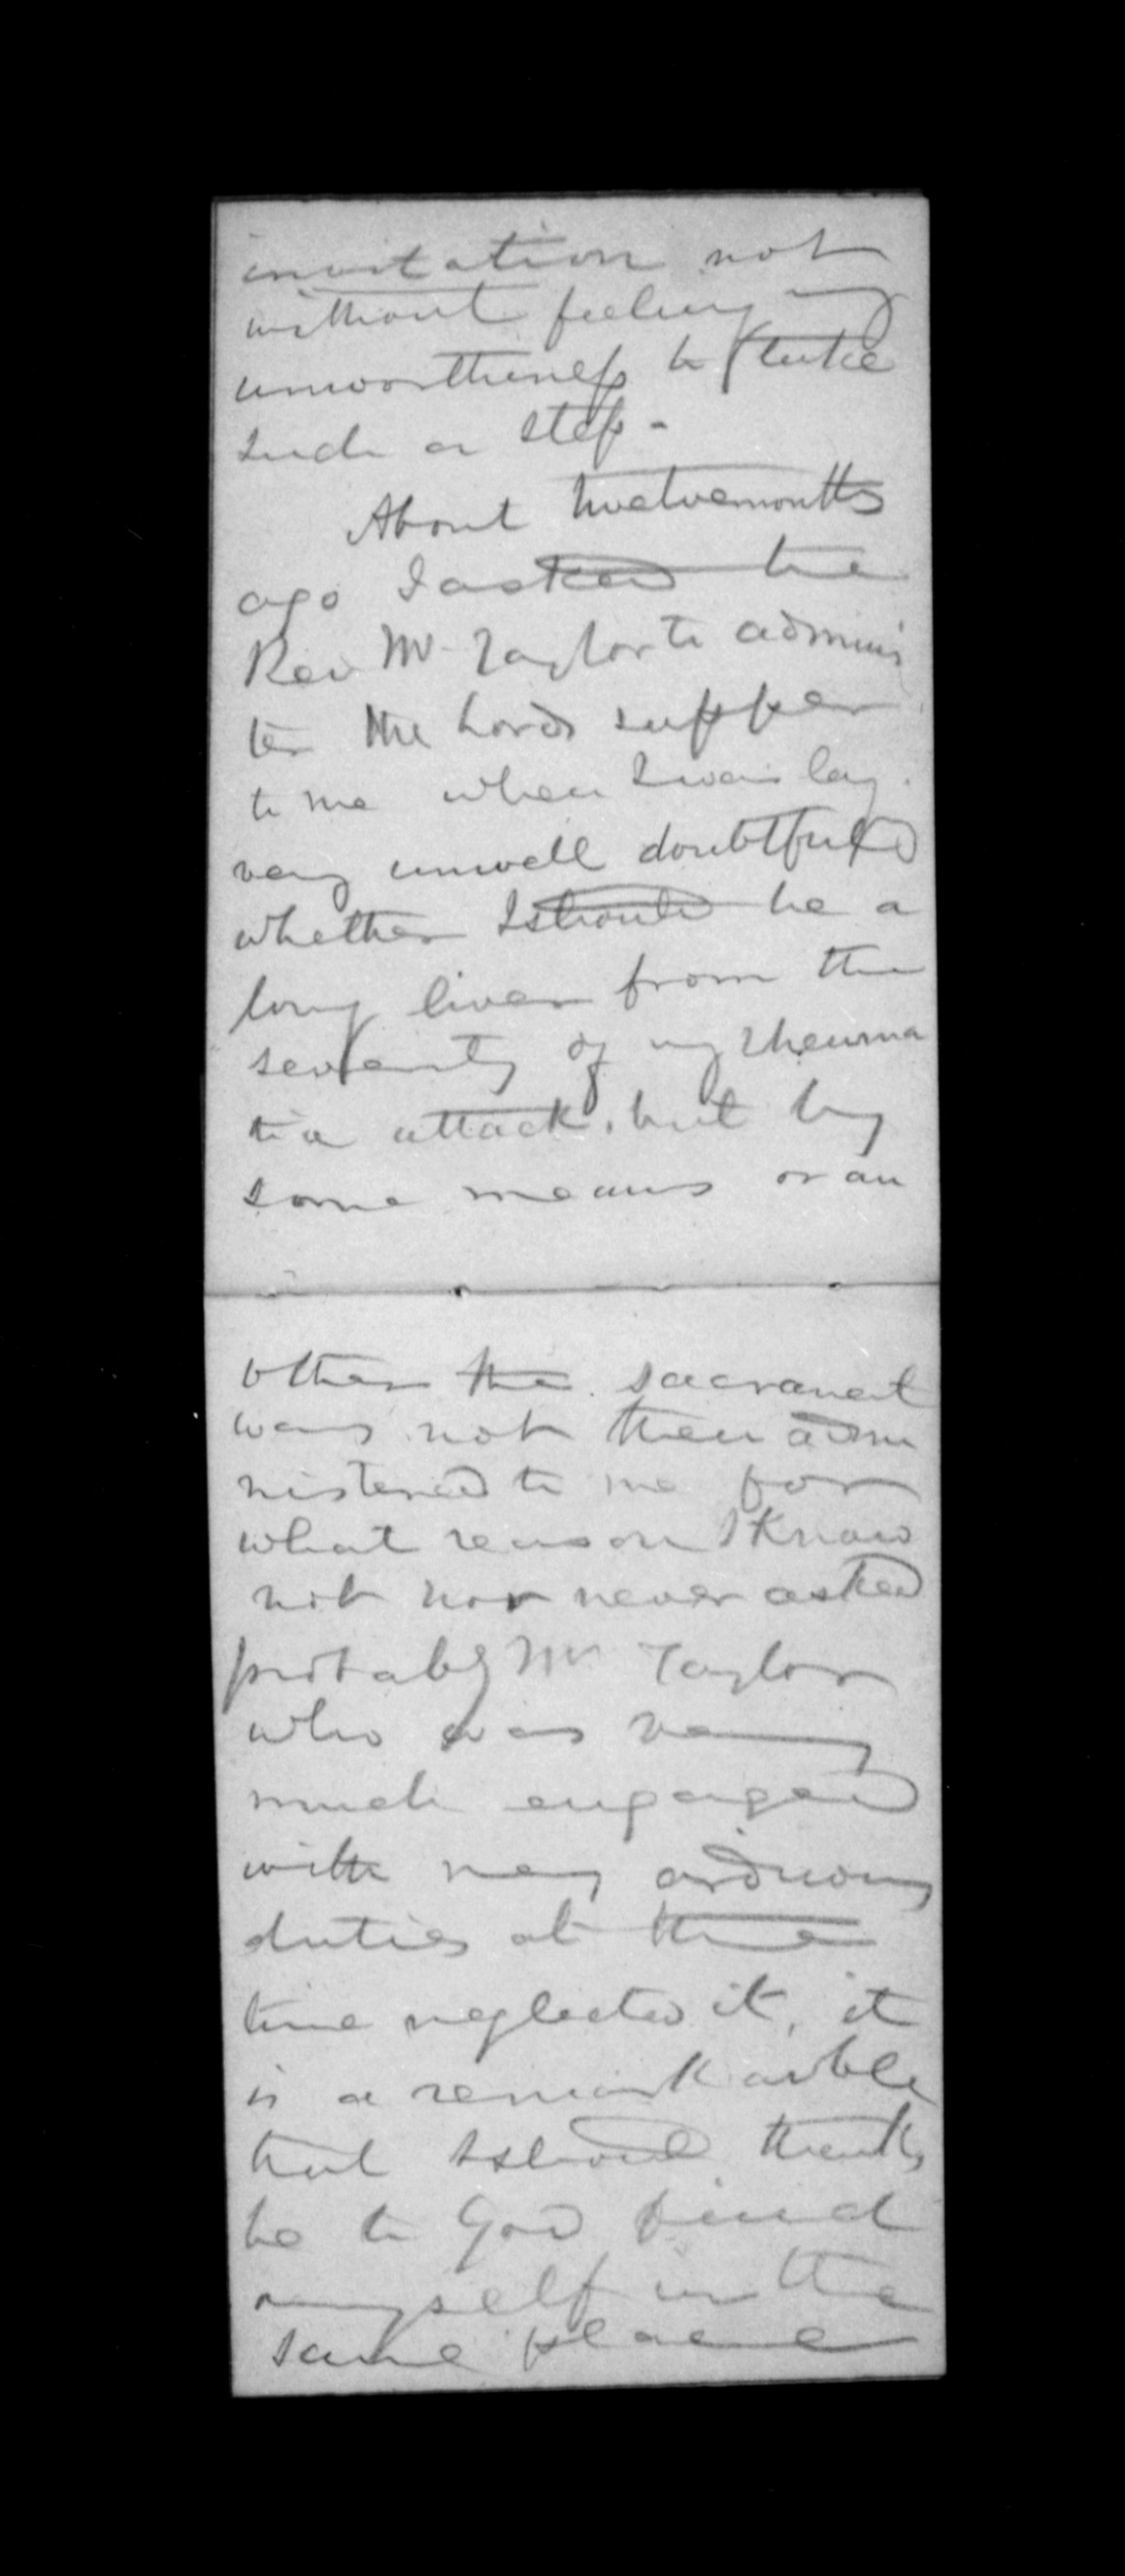 invitation not
without feeling my
unworthiness to take
such a step -
About twelvemonths
ago I asked the
Rev Mr Taylor to adminis
ter the Lords supper
to me when I was lay
very unwell doubtful
whether I should be a
long liver from the
severity of my rheuma
tic attack, but by
some means or an
other the sacrament
was not then admi
nistered to me for
what reason I know
not nor never asked
probably Mr Taylor
who was very
much engaged
with very arduous
duties at the
time neglected it, it
is a remarkable
that I should thanks
be to God find
myself in the
same place